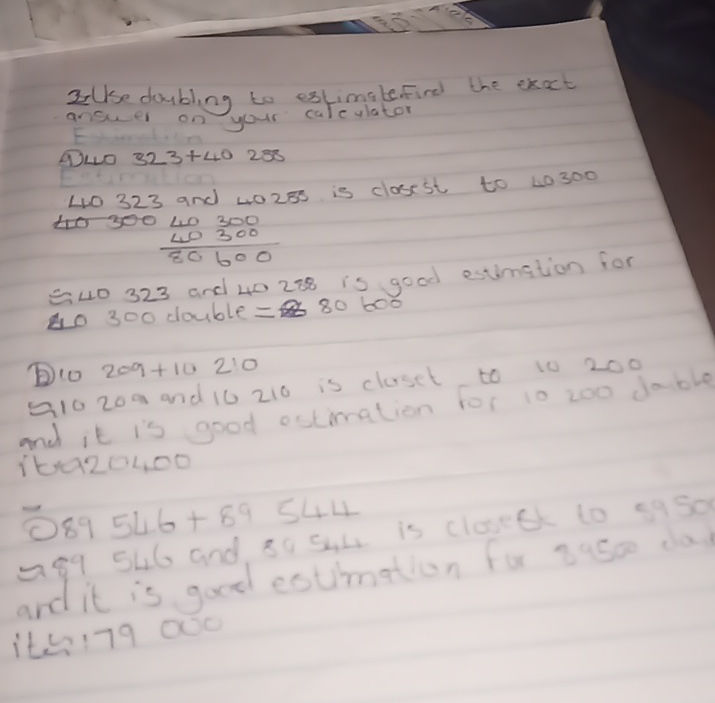 3. Use doubling to estimate find the exact
answer on your calculator
Estimation
A) 40 323 + 40 288
Estimation
40 323 and 40 288 is closest to 40300
40 300 40 300
40 300
80 600
40 323 and 40 288 is good estimation for
40 300 double = 80 600
B) 10 209 + 10 210
10 209 and 10 210 is closet to 10 200
and it is good estimation for 10 200 double
it 20400
C) 89 546 + 89 544
89 546 and 89 544 is closest to 8950
and it is good estimation for 89500
it 179 000